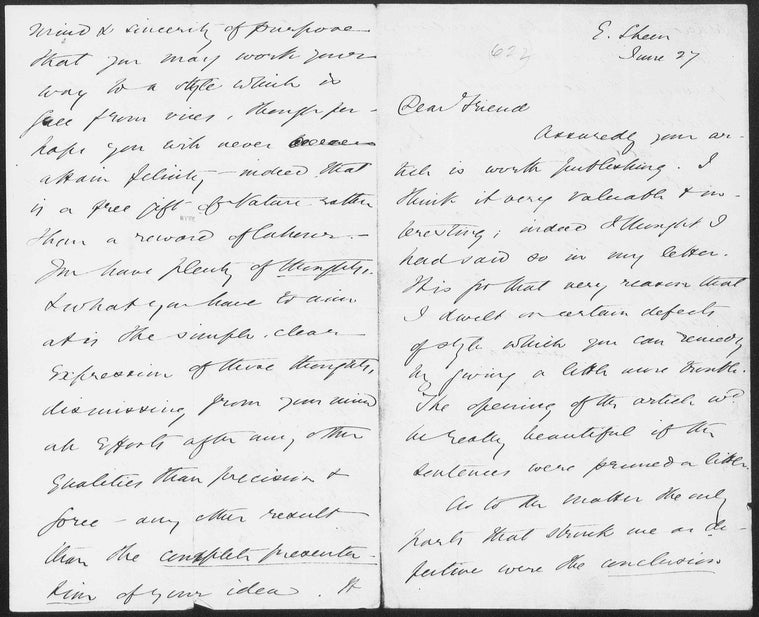 E. Sheen
June 27
622
Dear Friend
Assuredly your ar-
ticle is worth publishing. I
think it very valuable & in-
teresting; indeed I thought I
had said so in my letter.
It is for that very reason that
I dwelt on certain defects
of style which you can remedy
by giving a little more trouble.
The opening of the article wd
be really beautiful if the
sentences were pruned a little
As to the matter the only
parts that struck me as de-
fective were the conclusion
mind & sincerity of purpose
that you may work your
way to a style which is
free from vices, though per-
haps you will never
attain felicity – indeed that
is a free gift of Nature rather
than a reward of labour. –
You have plenty of thoughts,
& what you have to aim
at is the simple, clear
expression of those thoughts,
dismissing from your mind
all efforts after any other
qualities than precision &
force – any other result
than the complete presenta-
tion of your idea. It